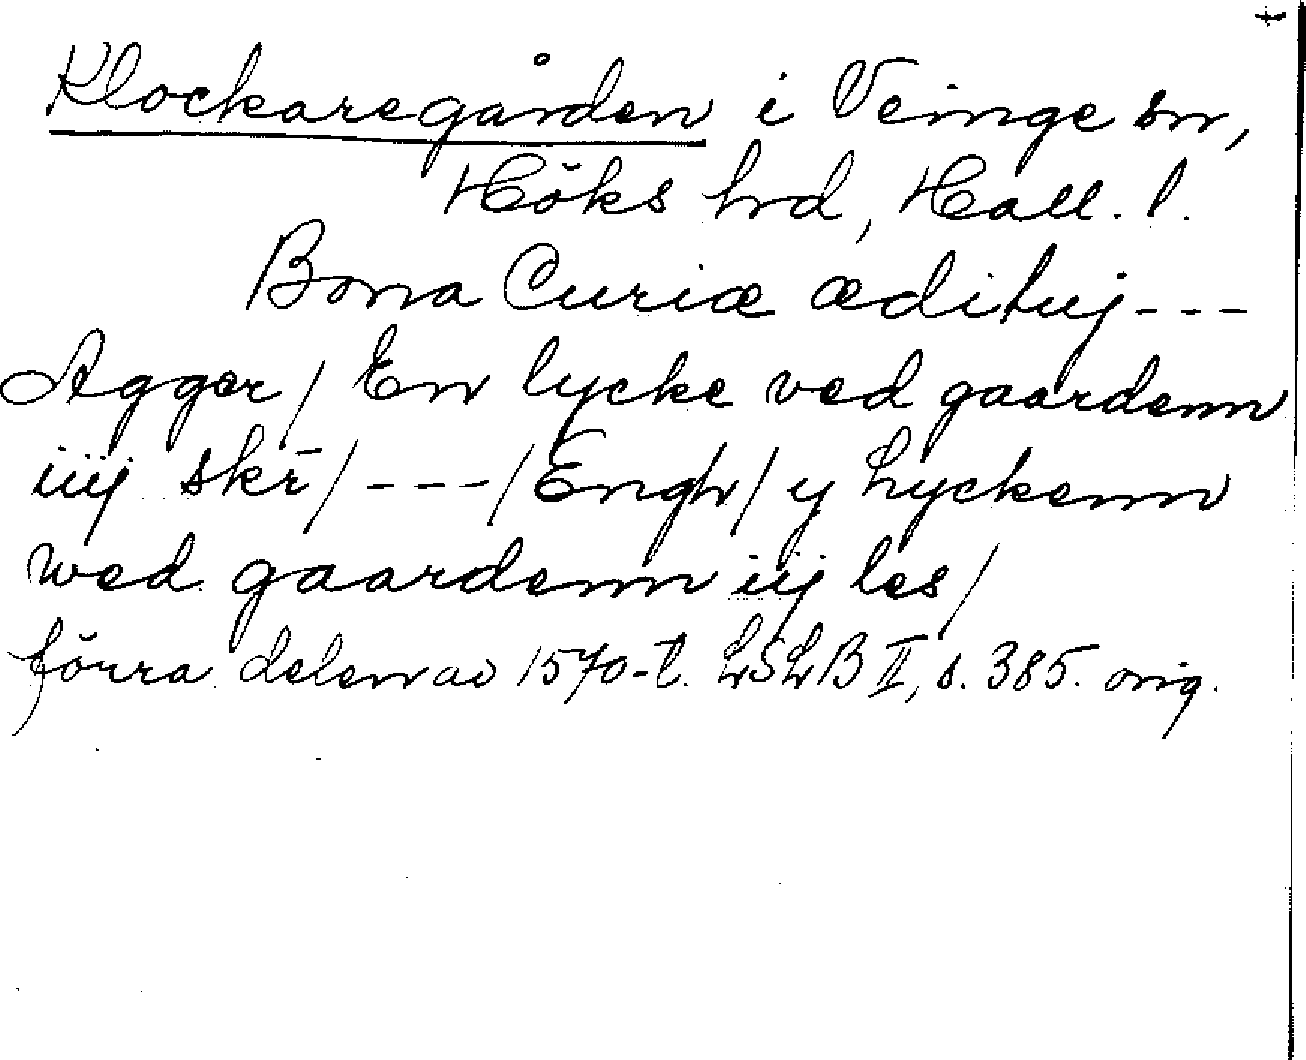 t
Klockaregården i Veinge sn,
Höks hrd, Hall. l.
Bona Curiæ ædituj ---
Agger / En lycke ved gaardenn
iiij skr̄ / --- / Engh / y Lyckenn
wed gaardenn iiij les /
förra delen av 1570-t. LSLB II, s. 385. orig.